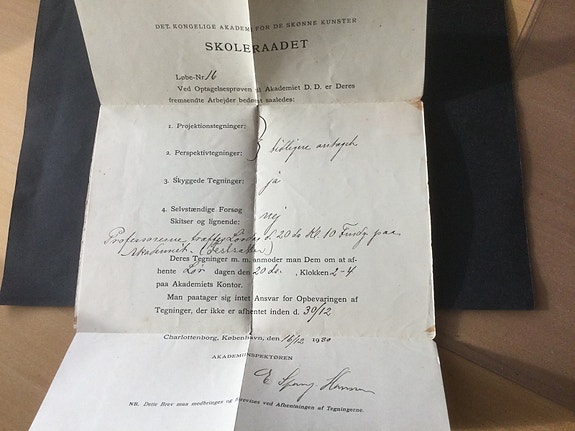 DET KONGELIGE AKADEMI FOR DE SKØNNE KUNSTER
SKOLERAADET
Løbe-Nr. 16
Ved Optagelsesprøven til Akademiet D. D. er Deres
fremsendte Arbejder bedømt saaledes:
1. Projektionstegninger:
2. Perspektivtegninger: tidligere antaget
3. Skyggede Tegninger: ja
4. Selvstændige Forsøg
Skitser og lignende: nej
Professorerne træffes Lørdag d. 20de Kl. 10 Form. paa
Akademiet
Deres Tegninger m. m. anmoder man Dem om at af-
hente Lør dagen den 20de, Klokken 2-4
paa Akademiets Kontor.
Man paatager sig intet Ansvar for Opbevaringen af
Tegninger, der ikke er afhentet inden d. 30/12
Charlottenborg, København, den 16/12 1930
AKADEMIINSPEKTØREN
E Spang Hansen
NB. Dette Brev maa medbringes og forevises ved Afhentningen af Tegningerne.